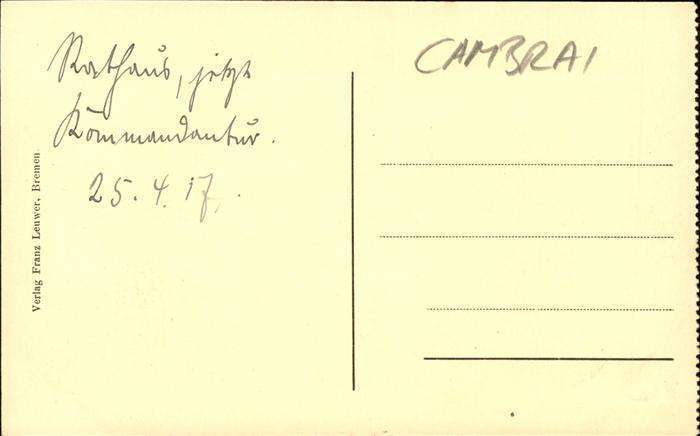 Rathaus, jetzt
Kommandantur.
25.4.17.
CAMBRAI
Verlag Franz Leuwer, Bremen